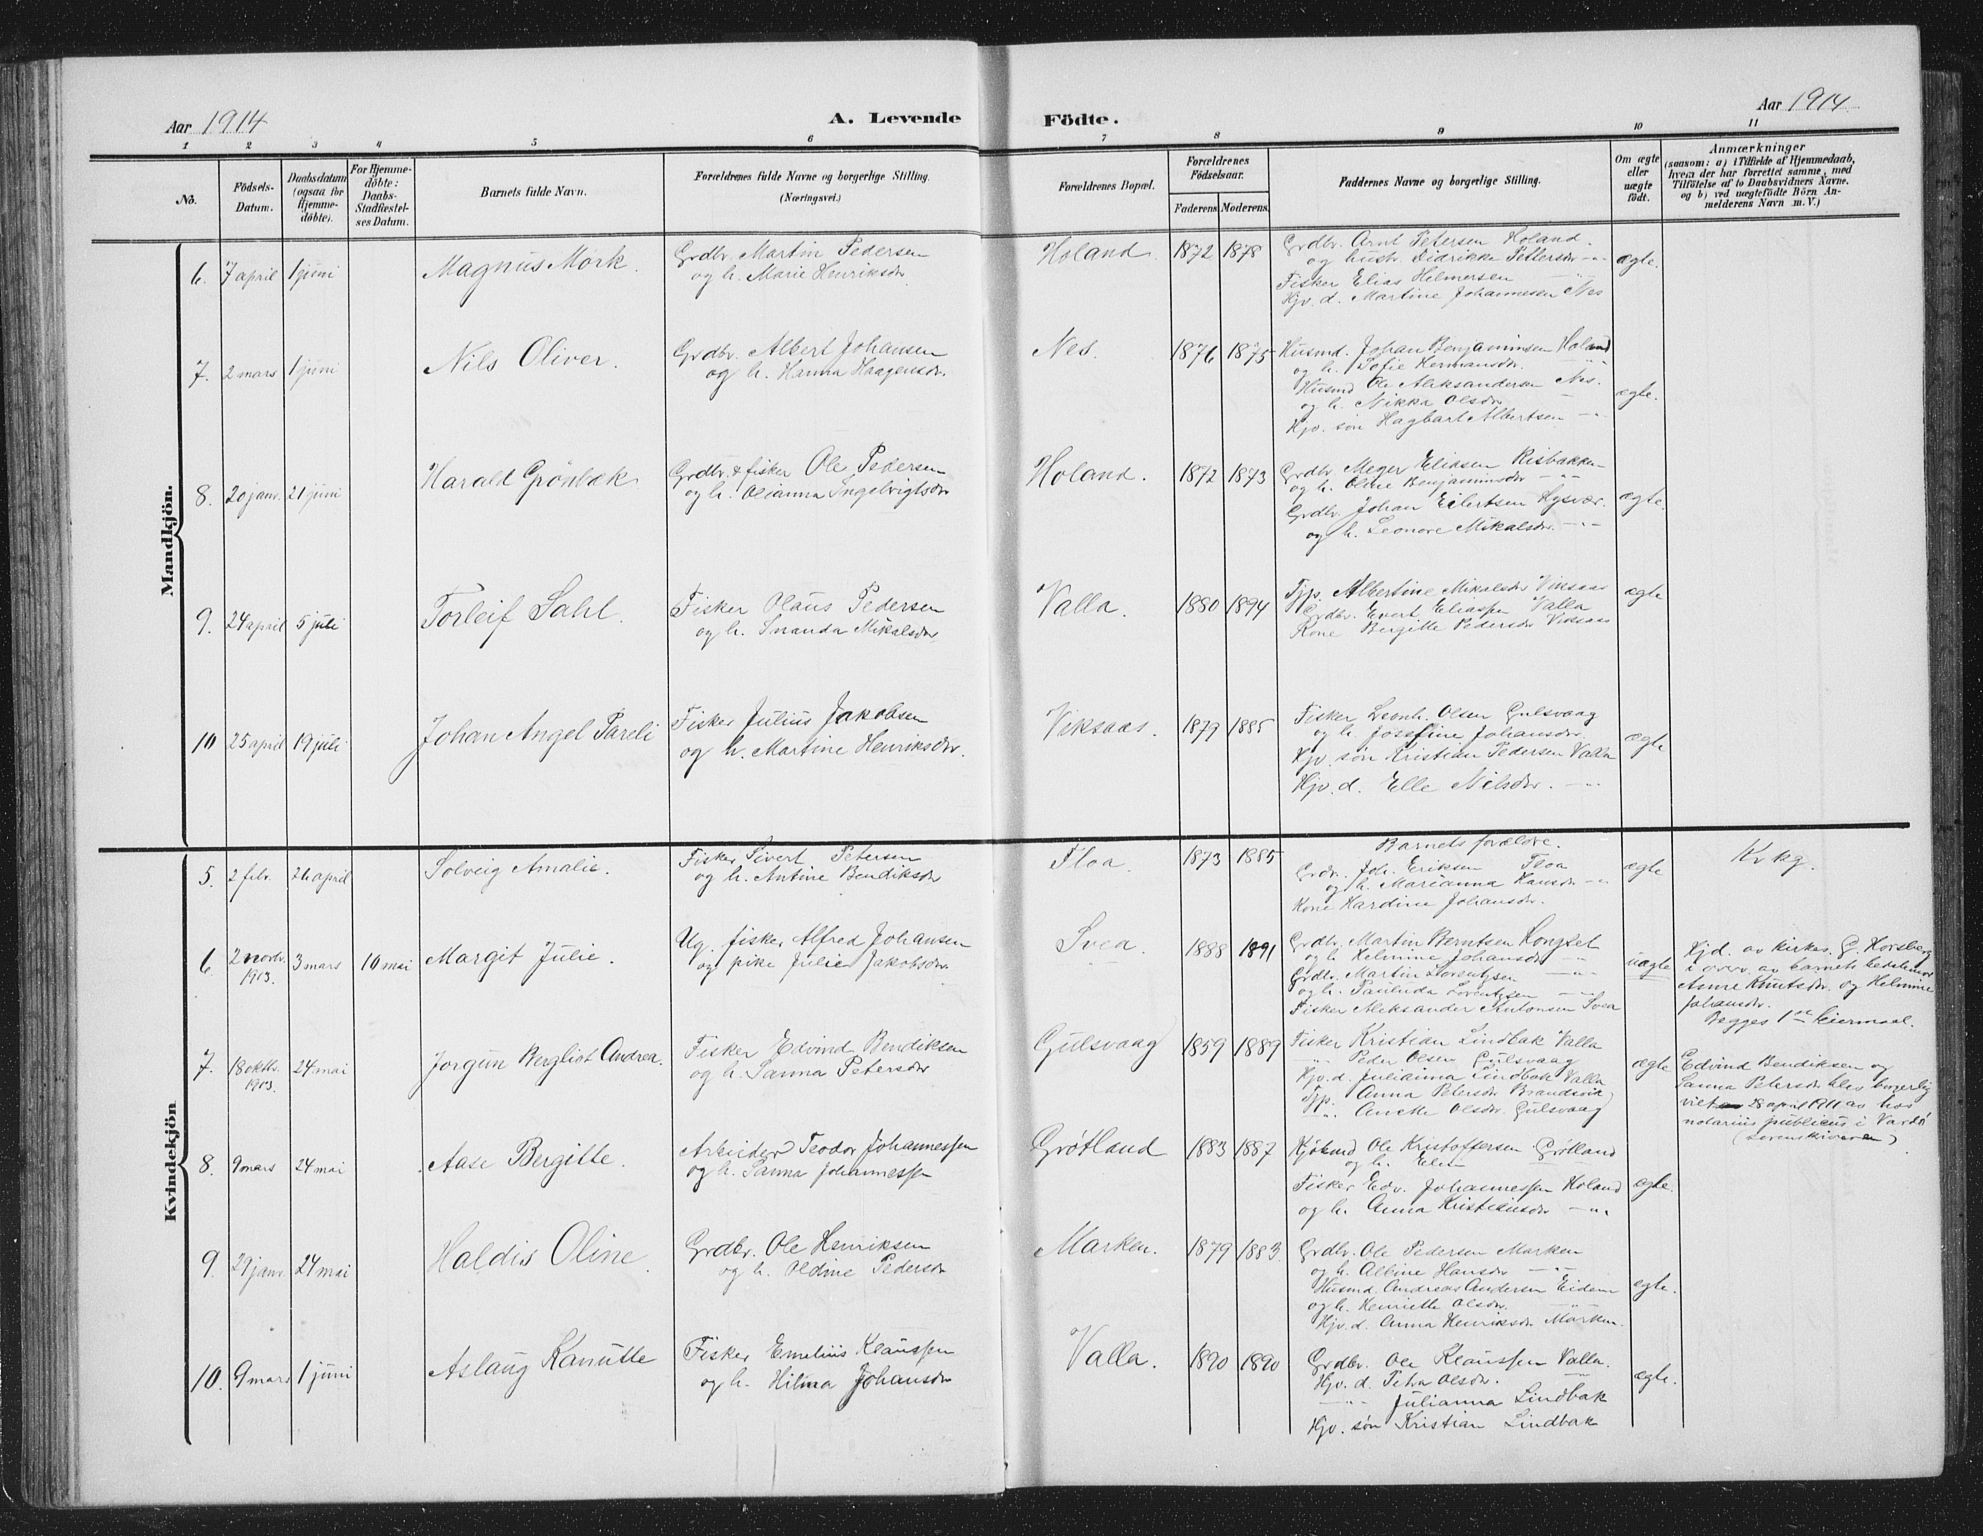 Aar 1914
A. Levende
Födte.
Aar 1914
1 2 3 4 5 6 7 8 9 10 11
No.
Födsels-Datum.
Daabsdatum (ogsaa for Hjemme-döbte).
For Hjemme-döbte: Daabs-Stadfæstel-ses Datum.
Barnets fulde Navn.
Forældrenes fulde Navne og borgerlige Stilling. (Næringsvei.)
Forældrenes Bopæl.
Forældrenes Födselsaar.
Faderens Moderens
Faddernes Navne og borgerlige Stilling.
Om ægte eller uægte födt.
Anmærkninger
(saasom: a) i Tilfælde af Hjemmedaab,
hvem der har forrettet samme, med
Tilföielse af to Daabsvidners Navne.
og b) ved uægtefödte Börn An-
melderens Navn m. V.)
Mandkjön.
6. 7 april 1 juni Magnus Mork.
Grdbr. Martin Pedersen
og h. Marie Henriksdr.
Holand. 1872 1878
Grdbr. Arnt Petersen Holand.
og hustr. Didrikke Pettersdr -"-
Fisker Elias Helmersen -"-
Hjv. d. Martine Johannesen Nes
ægte.
7. 2 mars 1 juni Nils Oliver.
Grdbr. Albert Johansen
og h. Hanna Haagensdr.
Nes. 1876 1875
Husmd. Johan Benjaminsen Holand
og h. Sofie Hermansdr. "
Husmd Ole Aleksandersen Nes.
og h. Nikka Olsdr.
Hjv. søn Hagbart Albertsen -"-
ægte.
8. 20 janv. 21 juni Harald Grönbæk
Grdbr. & fisker Ole Pedersen
og h. Olianna Ingelvigtsdr
Holand. 1872 1873
Grdbr Meyer Eliasen Risbakken
og h. Oline Benjaminsdr -"-
Grdbr. Johan Eilertsen Hysvær.
og h. Leonore Mikalsdr. -"-
ægte.
9. 24 april 5 juli Torleif Sahl.
Fisker Olaus Pedersen
og h. Inanda Mikalsdr
Valla. 1880 1894
Tjp. Albertine Mikalsdr Viksaas
Grdbr. Evert Eliassen Valla
Kone Bergitte Pedersdr Viksaas
ægte
10 25 april 19 juli Johan Angel Pareli
Fisker Julius Jakobsen
og h. Martine Henriksdr.
Viksaas. 1879 1885
Fisker Leonh. Olsen Gulsvaag
og h. Josefine Johansdr.
Hjv. søn Kristian Pedersen Valla
Hjv. d. Elle Nilsdr. -"-
ægte
Kvindekjön
5. 2 febr. 26 april Solveig Amalie.
Fisker Sivert Petersen
og h. Antine Bendiksdr
Floa. 1873 1885
Barnets forældre.
Grdr. Joh. Eriksen Floa
og h. Marianna Hansdr -"-
Kone Hardine Johansdr.
ægte
Kv kg.
6 2 novbr. 1903. 3 mars 10 mai Margit Julie.
Ug. fisker Alfred Johansen
og pike Julie Jakobsdr.
Svea. 1888 1891
Grdbr. Martin Berntsen Kongtet
og h Helmine Johansdr -"-
Grdbr. Martin Lorentzen -"-
og h. Pauluda Lorentzen -"-
Fisker Aleksander Antonsen Svea
uægte
Hjd. av kirkes. G. Horsberg
i overv. av barnets bedstemor
Anne Knutsdr. og Helmine
Johansdr.
Begges 1ste leiermaal.
7. 18 oktb. 1903. 24 mai Jorgun Bergliot Andrea.
Fisker Edvind Bendiksen
og h. Sanna Petersdr
Gulsvaag 1859 1889
Fisker Kristian Lindbak Valla
-"- Peder Olsen Gulsvaag
Hjv. d. Julianna Lindbak Valla
Tjp. Anna Petersdr Brandsvik
" Aneke Olsdr. Gulsvaag
ægte
Edvind Bendiksen og
Sanna Petersdr blev borgerlig
viet 28 april 1911 av hos
notarius publicus i Vardø
8. 9 mars 24 mai Aase Bergitte.
Arbeider Teodor Johannessen
og h. Sanna Johannessen
Grøtland 1883 1887
Ole Kristoffersen Grøtland
og h. Elen
Fisker Edv. Johannessen Holand
og h. Anna Kristiansdr -"-
ægte.
9. 29 janv. 24 mai Haldis Oline.
Grdbr. Ole Henriksen
og h. Oldine Pedersdr
Marken. 1879 1883.
Grdbr. Ole Pedersen Marken
og h. Albine Hansdr -"-
Husmd. Andreas Andersen Eidem
og h. Henriette Olsdr. -"-
Hjv. d. Anna Henriksdr Marken.
ægte.
10. 9 mars 1 juni Aslaug Kanutte
Fisker Emelius Klaussen
og h. Hilma Johansdr
Valla. 1890 1890
Grdbr. Ole Klaussen Valla.
Hjv. d. Petra Olsdr. -"-
-"- Julianna Lindbak
Hjv. søn Kristian Lindbak
ægte.